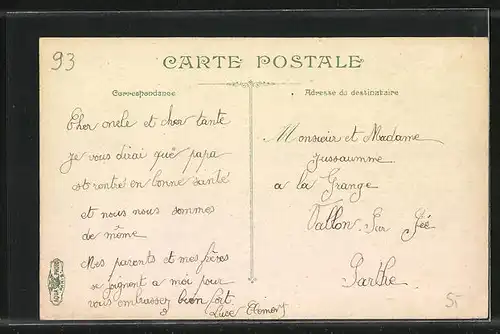 93
CARTE POSTALE
Correspondance
Adresse du destinataire
Cher oncle et cher tante
je vous dirai que papa
est rentré en bonne santé
et nous nous sommes
de même
Mes parents et mes frères
se joignent a moi pour
vous embrasser bien fort
Monsieur et Madame
Jussaumme
a la Grange
Vallon Sur Gée
Sarthe